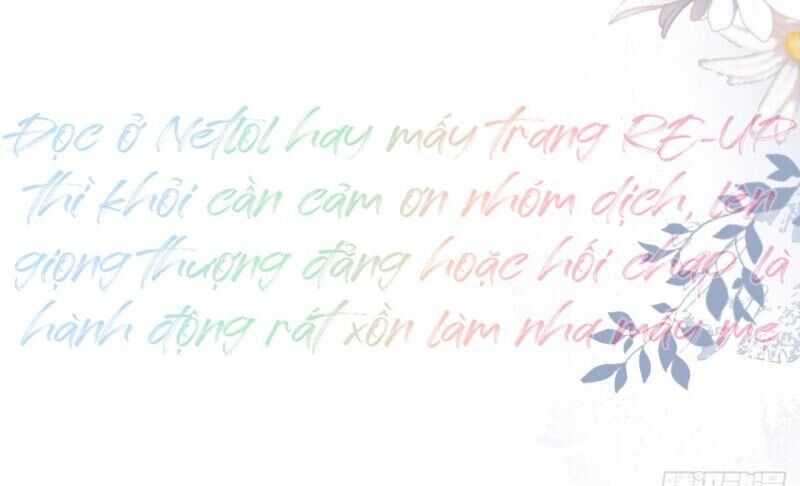 Đọc ở Nettol hay mấy trang RE-UP
thì khỏi cần cảm ơn nhóm dịch, lên
giọng thượng đẳng hoặc hối chap là
hành động rất xồn làm nha mấy mẹ